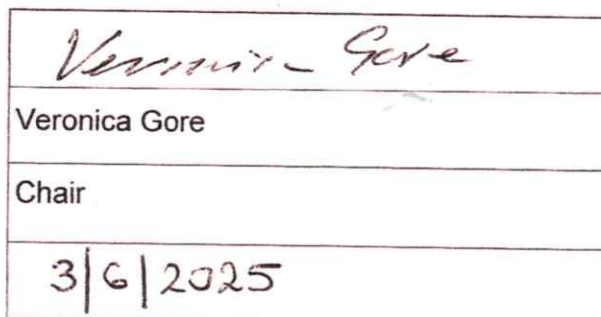 Veronica Gore
Veronica Gore
Chair
3|6|2025